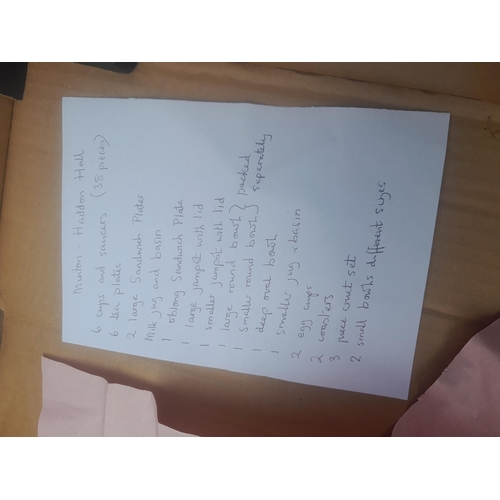 Minton Haddon Hall
6 cups and saucers (38 pieces)
6 tea plates
2 large Sandwich Plates
Milk jug and basin
1 oblong Sandwich Plate
1 large jampot with lid
1 smaller jampot with lid
1 large round bowl } packed
1 smaller round bowl } separately
1 deep oval bowl
1 smaller jug + basin
2 egg cups
2 coasters
3 piece cruet set
2 small bowls different sizes